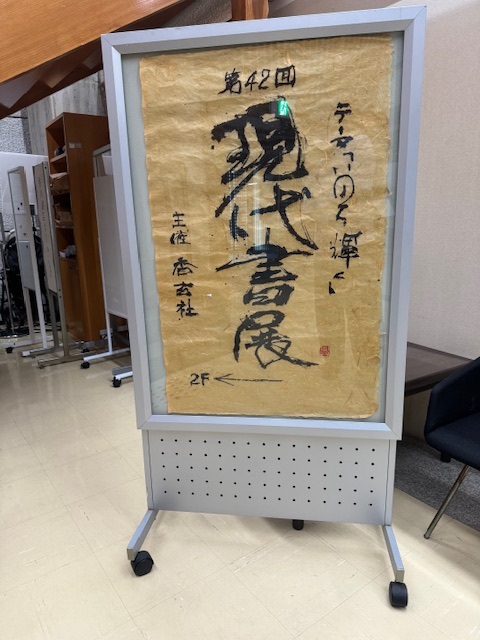 第42回
現代書展
テーマ「日々輝く」
主催 香玄社
2F ←